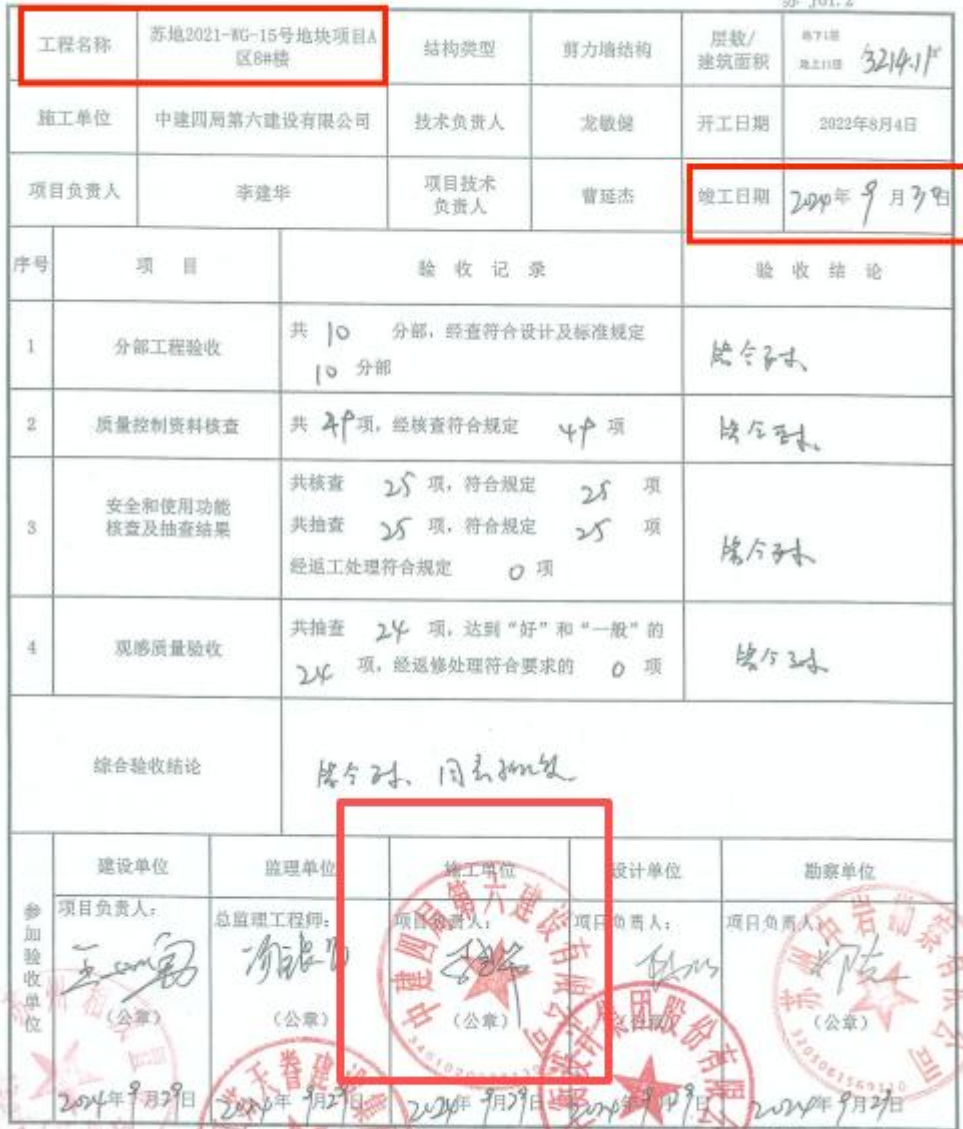 苏 J01.2
工程名称
苏地2021-WG-15号地块项目A
区8#楼
结构类型
剪力墙结构
层数/
建筑面积
地下1层
地上11层
3214.1㎡
施工单位
中建四局第六建设有限公司
技术负责人
龙敏健
开工日期
2022年8月4日
项目负责人
李建华
项目技术
负责人
曹延杰
竣工日期
2024年 9 月 日
序号
项 目
验 收 记 录
验 收 结 论
1
分部工程验收
共 10 分部，经查符合设计及标准规定
10 分部
符合要求
2
质量控制资料核查
共 49 项，经核查符合规定 49 项
符合要求
3
安全和使用功能
核查及抽查结果
共核查 25 项，符合规定 25 项
共抽查 25 项，符合规定 25 项
经返工处理符合规定 0 项
符合要求
4
观感质量验收
共抽查 24 项，达到“好”和“一般”的
24 项，经返修处理符合要求的 0 项
符合要求
综合验收结论
符合要求、同意验收
参加验收单位
建设单位
监理单位
施工单位
设计单位
勘察单位
项目负责人：
总监理工程师：
项目负责人：
项目负责人：
项目负责人：
（公章）
（公章）
（公章）
（公章）
（公章）
中建四局第六建设有限公司
2024年9月29日
2024年9月29日
2024年9月29日
2024年9月29日
2024年9月29日